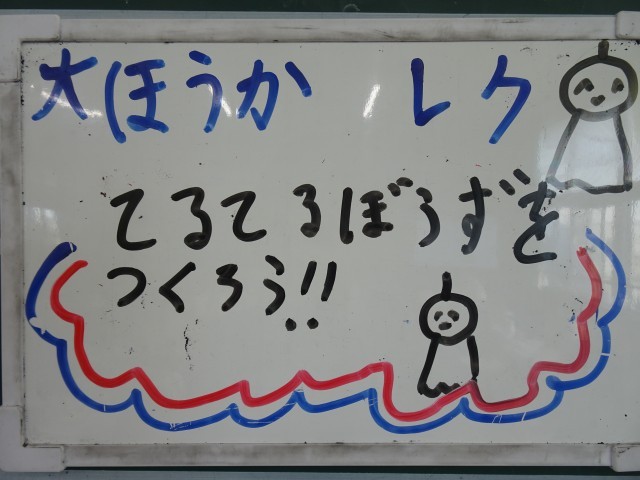 大ほうか レク
てるてるぼうずを
つくろう!!